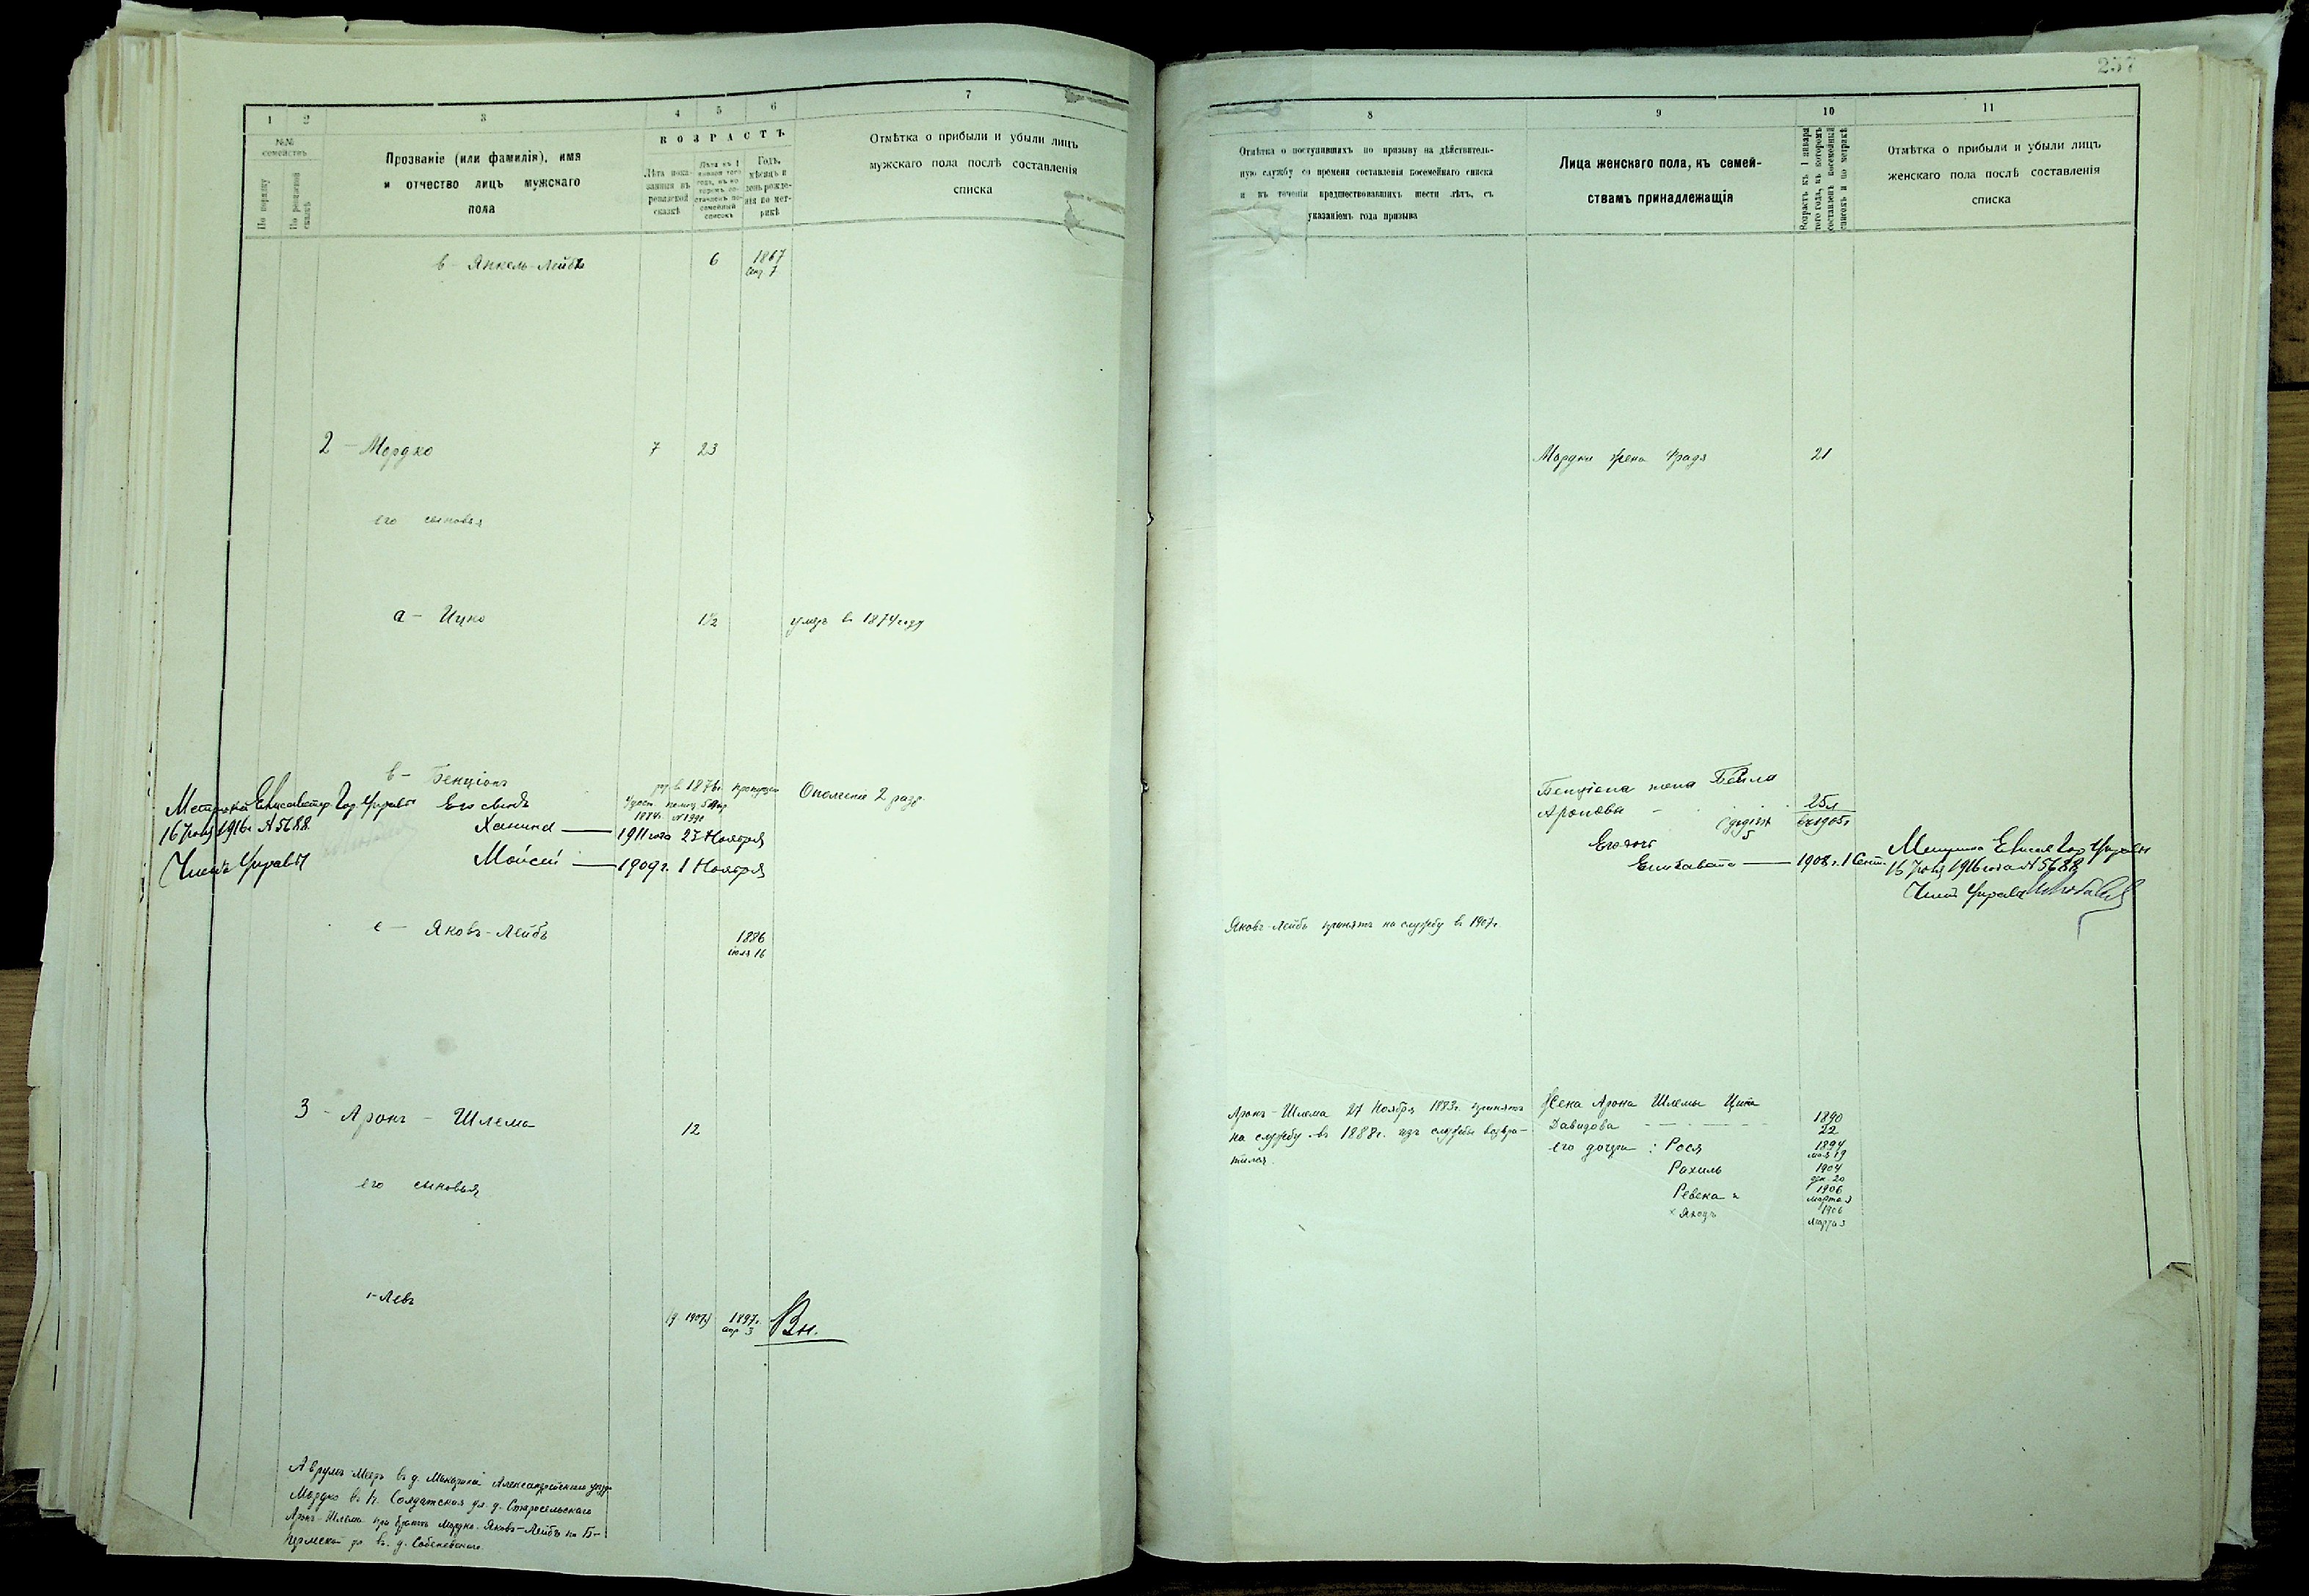 1 2 3 4 5 6 7
№№ семействъ
По порядку
По ревизской сказкѣ
Прозваніе (или фамилія), имя
и отчество лицъ мужскаго
пола
ВОЗРАСТЪ
Лѣта пока-
занныя въ
ревизской
сказкѣ
Лѣта къ 1
января того
года, въ ко-
торомъ со-
ставленъ по-
семейный
списокъ
Годъ,
мѣсяцъ и
день рожде-
нія по мет-
рикѣ
Отмѣтка о прибыли и убыли лицъ
мужскаго пола послѣ составленія
списка
в - Янкель-Лейбъ 6 1867
7
2 - Мордко 7 23
его сыновья
а - Ицко 1½ умеръ в 1874 году
в - Бенціонъ
р. в 1876 г. Ополченіе 2 разр.
1874 г. № 1990
Гор. Управы Его сынъ
16 1916 г. № 5688
Ханина — 1911 года 23 Ноября
Членъ Управы
Мойсей — 1909 г. 1 Ноября
с - Яковъ-Лейбъ 1886
іюля 16
3 - Аронъ - Шлема 12
его сыновья
1-Левъ 1897 г. Вн.
апр 3
Аврумъ-Меръ въ д. Александрійскаго
Мордко въ Солдатская ул. д. Старосельскаго
Аронъ-Шлема при братѣ Мордко. Яковъ-Лейбъ на Б-
Пермской ул. въ д.
257
8 9 10 11
Отмѣтка о поступившихъ по призыву на дѣйствитель-
ную службу со времени составленія посемейнаго списка
и въ теченіи предшествовавшихъ шести лѣтъ, съ
указаніемъ года призыва
Лица женскаго пола, къ семей-
ствамъ принадлежащія
Возрастъ къ 1 января
того года, въ которомъ
составленъ посемейный
списокъ и по метрикѣ
Отмѣтка о прибыли и убыли лицъ
женскаго пола послѣ составленія
списка
Мордки жена Фрадя 21
Бенціона жена Бейла
Ароновы 25 л
въ 1905 г
Его дочь
Елизавета — 1908 г. 1 Сент.
Гор. Управы
16 1916 года № 5688
Членъ Управы
Яковъ-Лейбъ принятъ на службу въ 1907 г.
Аронъ-Шлема 27 Ноября 1883 г. принятъ
на службу въ 1888 г. изъ службы возвра-
тился.
Жена Арона Шлемы
Давидова
1890
22
его дочери: Рося 1894
19
Рахиль 1904
дек. 20
Ревека 1906
марта 3
1906
марта 3